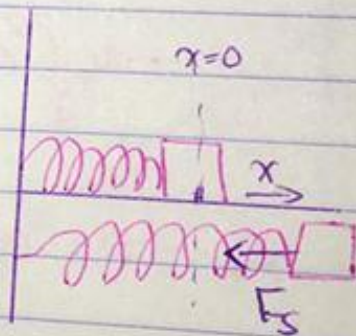 x=0
x
Fs